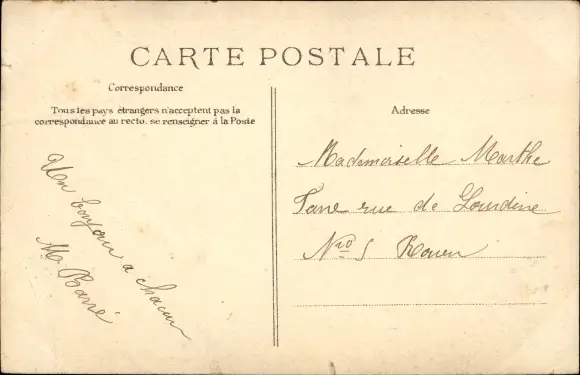 CARTE POSTALE
Correspondance
Tous les pays étrangers n'acceptent pas la
correspondance au recto. se renseigner à la Poste
Un bonjour a chacun
M Barré
Adresse
Mademoiselle Marthe
rue de
Nro 5 Rouen